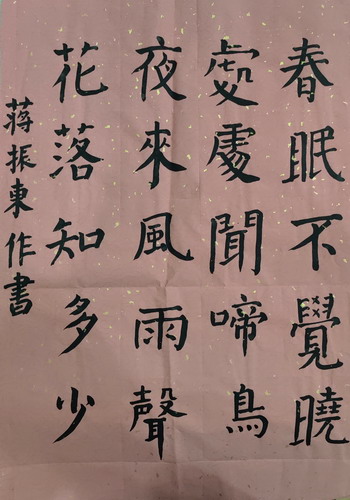 春眠不覺曉
處處聞啼鳥
夜來風雨聲
花落知多少
蔣振東作書